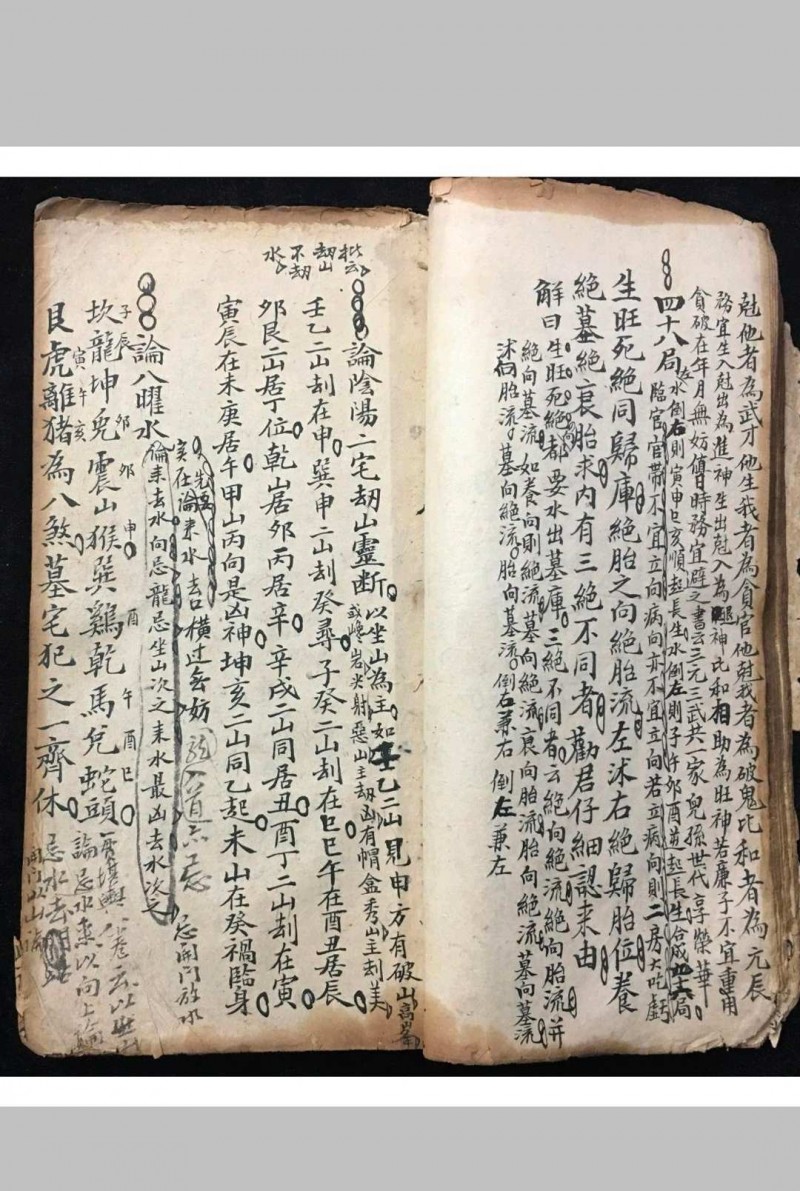 尅他者為武才他生我者為貪官他尅我者為破鬼比和者為元辰
務宜生入尅出為進神生出尅入為退神比和相助為旺神若廉子不宜重用
貪破在年月無妨值時務宜避之書云三元三武共一家兒孫世代享榮華
四十八局
水倒右則寅申巳亥順起長生水倒左則子午卯酉逆起長生合成四十八局
臨官官帶不宜立向病向亦不宜立向若立病向則二房大吃虧
生旺死絕同歸庫絕胎之向絕胎流左沭右絕歸胎位養
絕墓絕衰胎求內有三絕不同者勸君仔細認來由
解曰生旺死絕向都要水出墓庫三絕不同者云絕向絕流絕向胎流并
絕向墓流如養向則絕流墓向絕流衰向胎流胎向絕流墓向墓流
沭向胎流墓向絕流胎向墓流倒右兼右倒左兼左
批云
劫山
不劫
水
論陰陽二宅劫山靈断
以坐山為主如壬乙二山見申方有破山高峯
或巉岩尖射惡山主劫凶有帽盒秀山主刦美
壬乙二山刦在申巽申二山刦癸尋子癸二山刦在巳巳午在酉丑居辰
卯艮二山居丁位乾山居卯丙居辛辛戌二山同居丑酉丁二山刦在寅
寅辰在未庚居午甲山丙向是凶神坤亥二山同乙起未山在癸禍臨身
實在論來水去口橫過無妨
忌開門放水
論八曜水
論来去水向忌龍忌坐山次之来水最凶去水次之
子辰 卯 卯 申 酉 午 酉 巳
坎龍坤兔震山猴巽鷄乾馬兌蛇頭
寅 午 亥
艮虎離猪為八煞墓宅犯之一齊休
論忌水来以向上論
忌水去